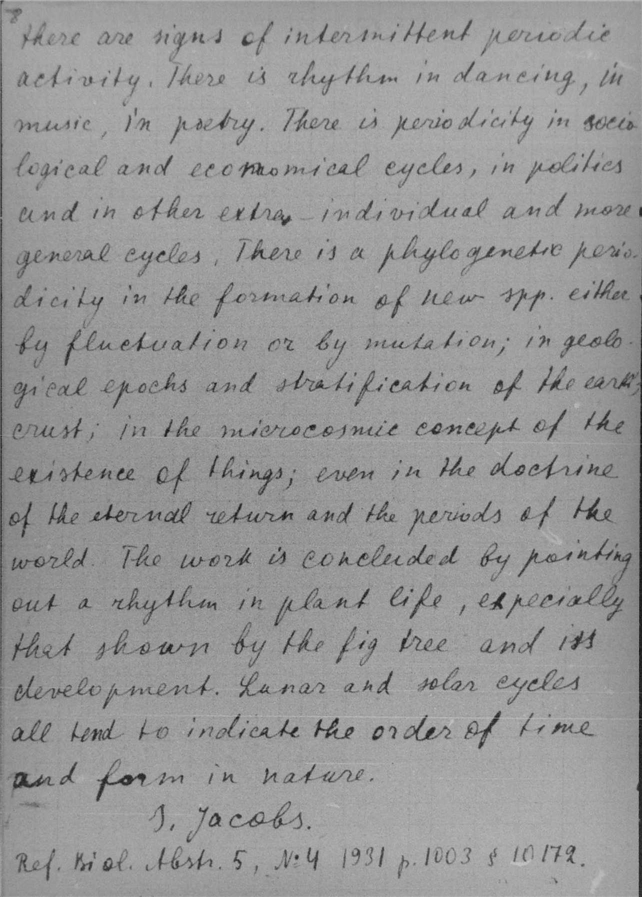 8
there are signs of intermittent periodic
activity. There is rhythm in dancing, in
music, in poetry. There is periodicity in socio-
logical and economical cycles, in politics
and in other extra-individual and more
general cycles. There is a phylogenetic perio-
dicity in the formation of new spp. either
by fluctuation or by mutation; in geolo-
gical epochs and stratification of the earth's
crust; in the microcosmic concept of the
existence of things; even in the doctrine
of the eternal return and the periods of the
world. The work is concluded by pointing
out a rhythm in plant life, especially
that shown by the fig tree and its
development. Lunar and solar cycles
all tend to indicate the order of time
and form in nature.
J. Jacobs.
Ref. Biol. Abstr. 5, №4 1931 p. 1003 § 10172.